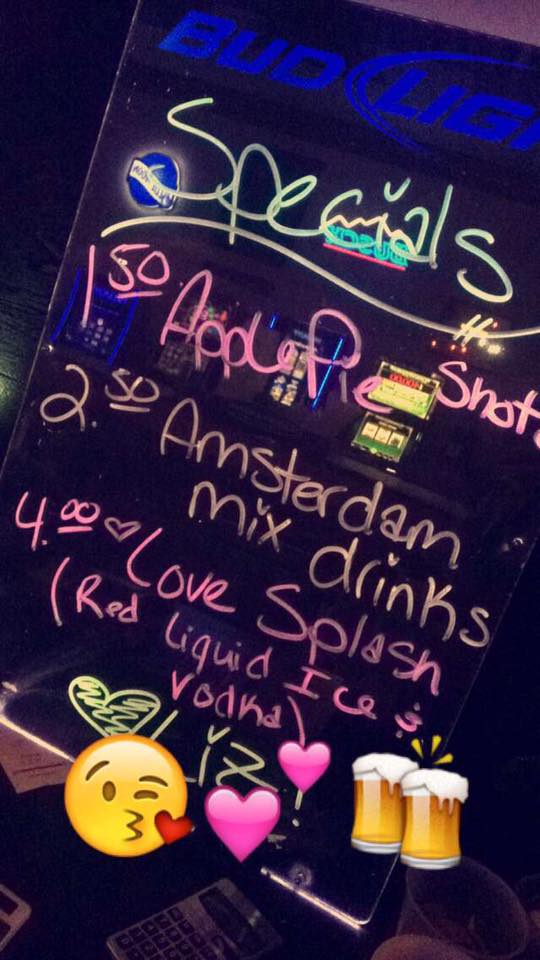 BUD LIGH
Specials
1.50 Apple Pie Shots
2.50 Amsterdam
mix drinks
4.00 ♡ Love Splash
(Red Liquid Ice &
Vodka)
Liz!